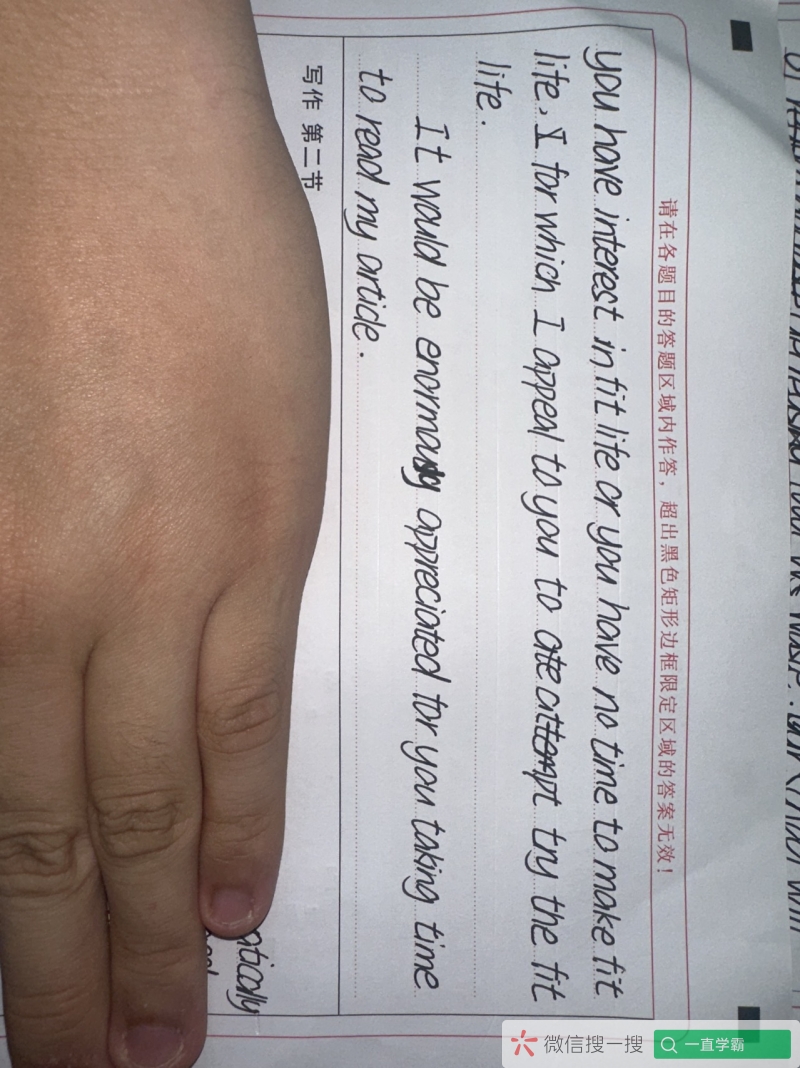 请在各题目的答题区域内作答，超出黑色矩形边框限定区域的答案无效！
you have interest in fit life or you have no time to make fit
life, I for which I appeal to you to ate attempt try the fit
life.
It would be enormously appreciated for you taking time
to read my article.
写作 第二节
atically
微信搜一搜
一直学霸